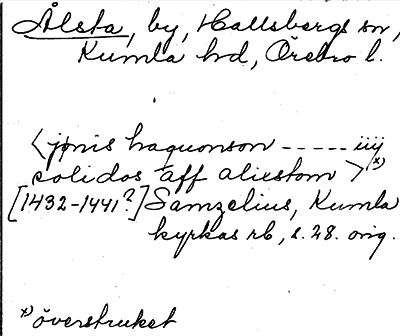 Ålsta, by, Hallsbergs sn,
Kumla hd, Örebro l.
<jönis haquonson ----- iiij
solidos aff aliestom >*)
[1432-1441?] Samzelius, Kumla
kyrkas rb, s. 28. orig.
*) överstruket